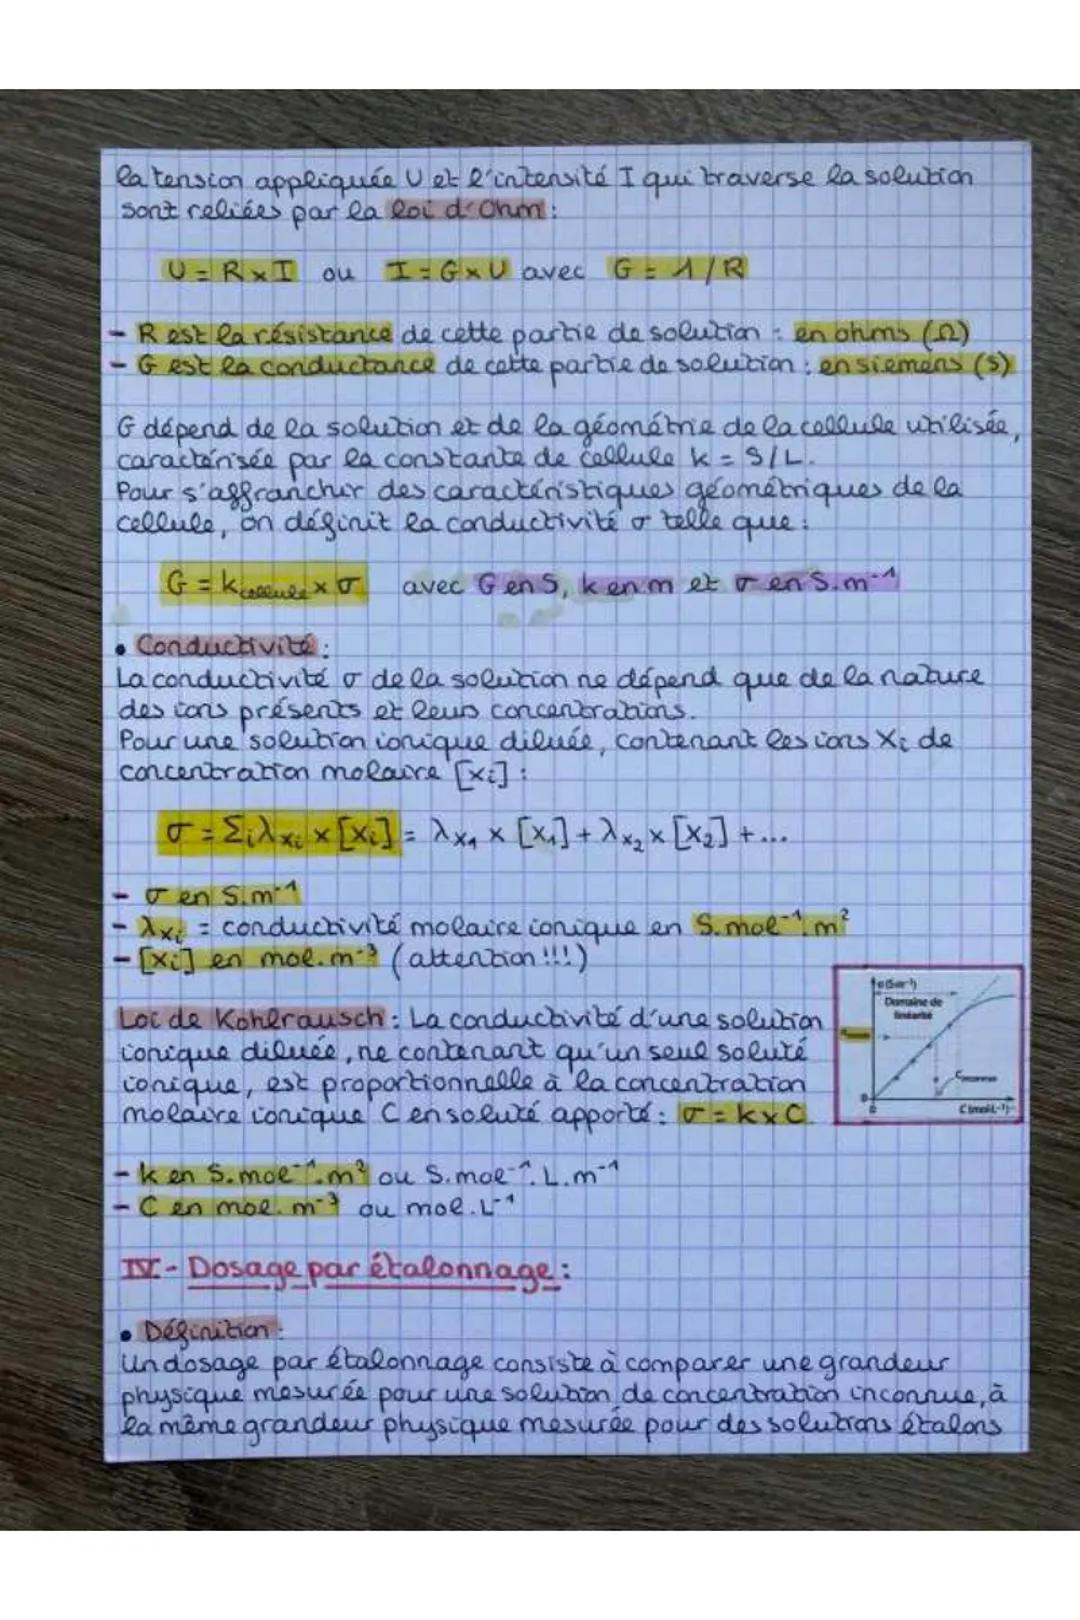 la tension appliquée U et l'intensité I qui traverse la solution
sont reliées par la loi d'Ohm :
U = R x I ou I = G x U avec G = 1/R
- R est la résistance de cette partie de solution : en ohms (Ω)
- G est la conductance de cette partie de solution : en siemens (S)
G dépend de la solution et de la géométrie de la cellule utilisée,
caractérisée par la constante de cellule k = S/L.
Pour s'affranchir des caractéristiques géométriques de la
cellule, on définit la conductivité σ telle que :
G = k cellule x σ avec G en S, k en m et σ en S.m⁻¹
• Conductivité :
La conductivité σ de la solution ne dépend que de la nature
des ions présents et leurs concentrations.
Pour une solution ionique diluée, contenant les ions Xi de
concentration molaire [Xi] :
σ = Σi λXi x [Xi] = λX₁ x [X₁] + λX₂ x [X₂] + ...
- σ en S.m⁻¹
- λXi = conductivité molaire ionique en S.mol⁻¹.m²
- [Xi] en mol.m⁻³ (attention !!!)
Loi de Kohlrausch : La conductivité d'une solution
ionique diluée, ne contenant qu'un seul soluté
ionique, est proportionnelle à la concentration
molaire ionique C en soluté apporté : σ = k x C
σ(S.m⁻¹)
Domaine de
linéarité
0
0
C(mol.L⁻¹)
- k en S.mol⁻¹.m² ou S.mol⁻¹.L.m⁻¹
- C en mol.m⁻³ ou mol.L⁻¹
IV - Dosage par étalonnage :
• Définition :
Un dosage par étalonnage consiste à comparer une grandeur
physique mesurée pour une solution de concentration inconnue, à
la même grandeur physique mesurée pour des solutions étalons